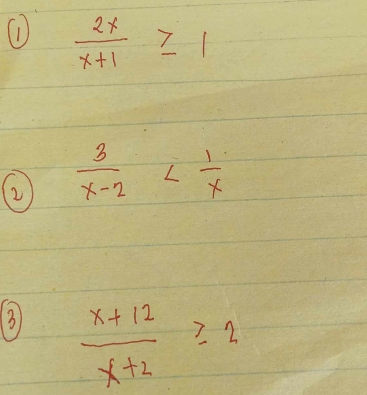 ① 2x/x+1 ≥ 1
② 3/x-2 < 1/x
③ x+12/x+2 ≥ 2